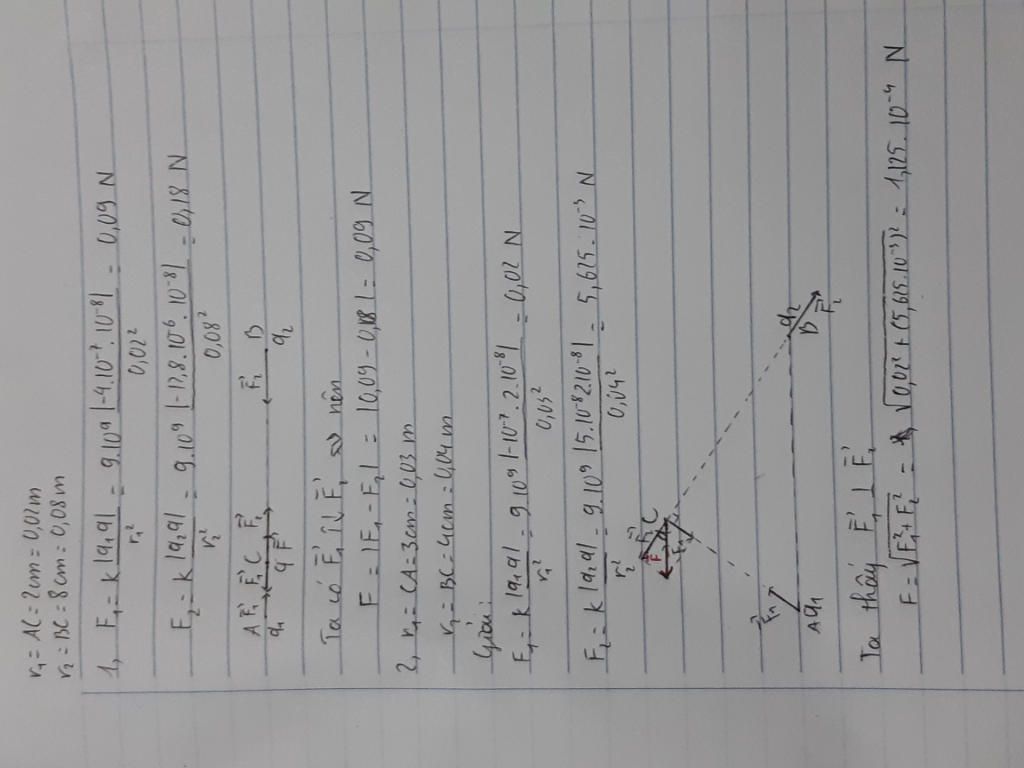 r₁ = AC = 2cm = 0,02m
r₂ = BC = 8cm = 0,08m
1, F₁ = k |q₁q| / r₁² = 9.10⁹ |-4.10⁻⁷.10⁻⁸| / 0,02² = 0,09 N
F₂ = k |q₂q| / r₂² = 9.10⁹ |-12,8.10⁻⁶.10⁻⁸| / 0,08² = 0,18 N
A F₁ F₂ C F₁ F₂ B
q₁ q F q₂
Ta có F₁ ↑↓ F₂ nên
F = |F₁ - F₂| = |0,09 - 0,18| = 0,09 N
2, r₁ = CA = 3cm = 0,03 m
r₂ = BC = 4cm = 0,04m
Giải:
F₁ = k |q₁q| / r₁² = 9.10⁹ |-10⁻⁷.2.10⁻⁸| / 0,03² = 0,02 N
F₂ = k |q₂q| / r₂² = 9.10⁹ |5.10⁻⁸2.10⁻⁸| / 0,04² = 5,615.10⁻³ N
F F₂ C
F₁
F₁ q₂
A q₁ B F₂
Ta thấy F₁ ⊥ F₂
F = √F₁² + F₂² = √0,02² + (5,615.10⁻³)² = 1,125.10⁻⁴ N